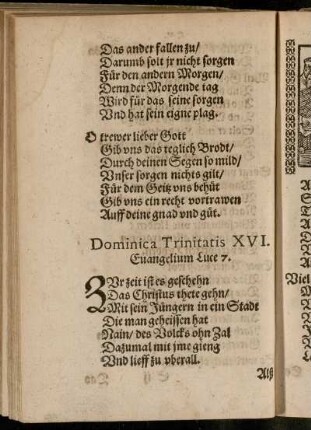 Das ander fallen zu/
Darumb solt jr nicht sorgen
Für den andern Morgen/
Denn der Morgende tag
Wird für das seine sorgen
Vnd hat sein eigne plag.
O trewer lieber Gott
Gib vns das teglich Brodt/
Durch deinen Segen so mild/
Vnser sorgen nichts gilt/
Für dem Geitz vns behüt
Gib vns ein recht vortrawen
Auff deine gnad vnd güt.
Dominica Trinitatis XVI.
Euangelium Luce 7.
ZVr zeit ist es geschehn
Das Christus thete gehn/
Mit sein Jüngern in ein Stadt
Die man geheissen hat
Nain/ des Volcks ohn Zal
Dazumal mit jme gieng
Vnd lieff zu vberall.
Alß
Viel